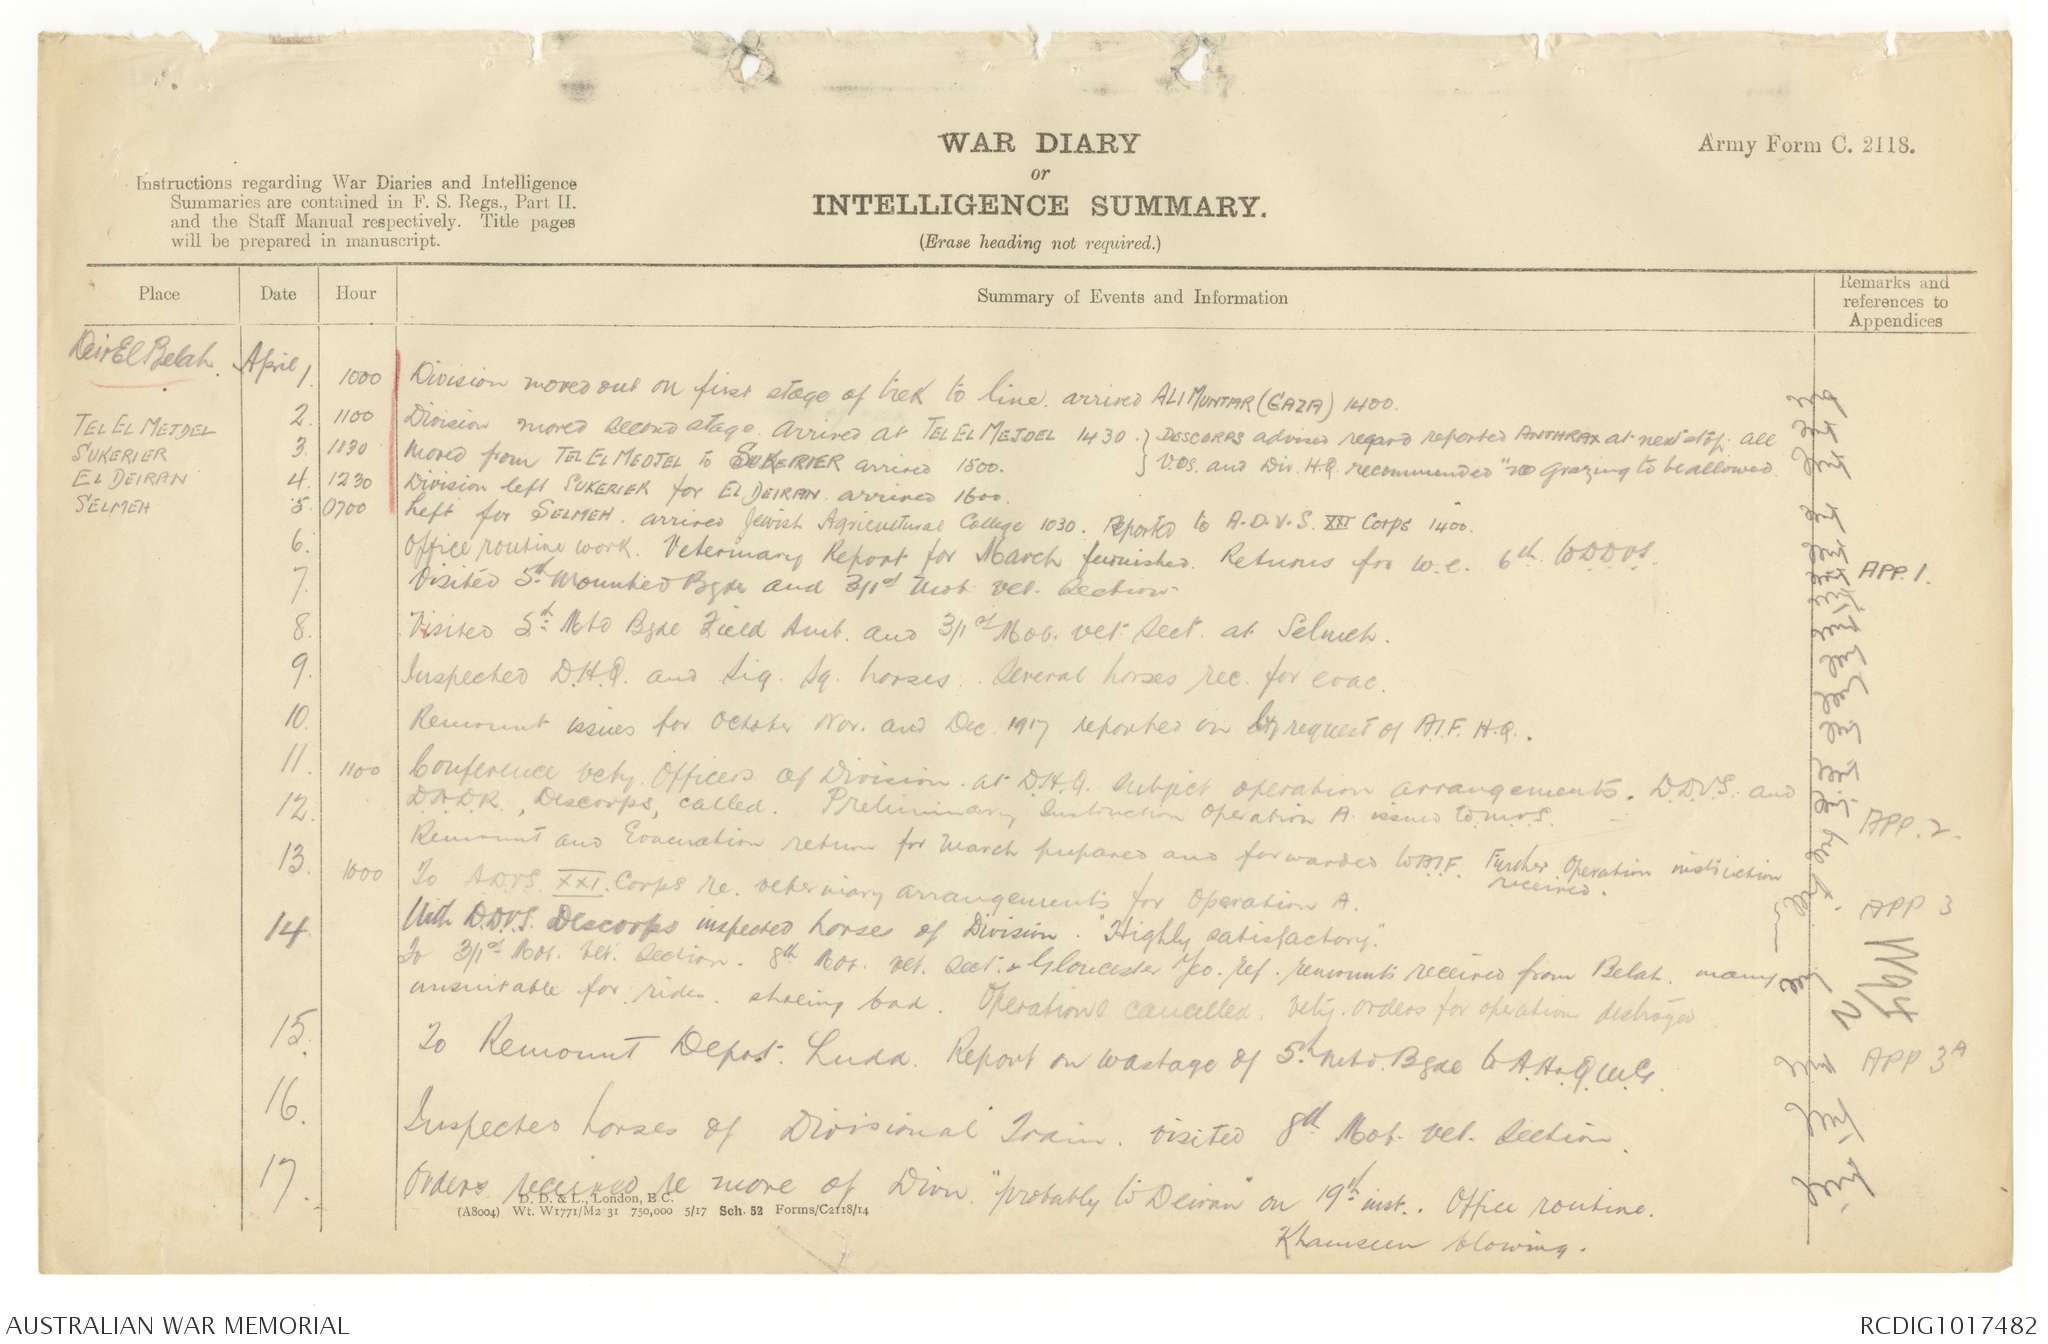 WAR DIARY
or
INTELLIGENCE SUMMARY.
(Erase heading not required.)
Army Form C. 2118.
Instructions regarding War Diaries and Intelligence
Summaries are contained in F. S. Regs., Part II.
and the Staff Manual respectively. Title pages
will be prepared in manuscript.
Place Date Hour Summary of Events and Information Remarks and references to Appendices
Deir El Belah. April 1. 1000 Division moved out on first stage of trek to line. arrived ALI MUNTAR (GAZA) 1400.
TEL EL MEJDEL 2. 1100 Division moved second stage. Arrived at TEL EL MEJDEL 1430. } DESCORPS advised regard reported ANTHRAX at next stop. all
SUKERIER 3. 1130 Moved from TEL EL MEDJEL to SUKERIER arrived 1500. } V.OS. and Div. H.Q. recommended "no grazing to be allowed.
EL DEIRAN 4. 1230 Division left SUKERIER for EL DEIRAN. arrived 1600.
SELMEH 5. 0700 Left for SELMEH. arrived Jewish Agricultural College 1030. Reported to A.D.V.S. XXI Corps 1400.
6. Office routine work. Veterinary Report for March furnished. Returns for w.e. 6th to D.D.V.S. APP. 1.
7. Visited 5th Mounted Bgde and 3/1st Mob. vet. Section.
8. Visited 5th Mtd Bgde Field Amb. and 3/1st Mob. vet. Sect. at Selmeh.
9. Inspected D.H.Q. and Sig. Sq. horses. Several horses rec. for evac.
10. Remount issues for October Nov. and Dec. 1917 reported on by request of A.I.F. H.Q.
11. 1100 Conference vety. Officers of Division at D.H.Q. Subject operation arrangements. D.D.V.S. and
D.A.D.R., Descorps, called. Preliminary Instruction Operation A. issued to M.V.S. APP. 2.
12. Remount and Evacuation return for March prepared and forwarded to A.I.F. Further Operation instruction
received.
13. 1000 To A.D.V.S. XXI. Corps re. veterinary arrangements for Operation A. APP 3
14. With D.D.V.S. Descorps inspected horses of Division. "Highly satisfactory".
To 3/1st Mob. Vet. Section. 8th Mob. vet. Sect. & Gloucester Yeo. ref. remounts received from Belah. many
unsuitable for rides. shoeing bad. Operations cancelled. Vety. orders for operation destroyed
15. To Remount Depot. Ludd. Report on wastage of 5th Mtd. Bgde to A.A. & Q.M.G. APP 3A
16. Inspected horses of Divisional Train. visited 8th Mob. vet. Section.
17. Orders received re move of Divn. "probably to Deiran" on 19th inst. Office routine.
Khamseen blowing.
D. D. & L., London, E C.
(A8004) Wt. W1771/M2 31 750,000 5/17 Sch. 52 Forms/C2118/14
AUSTRALIAN WAR MEMORIAL RCDIG1017482